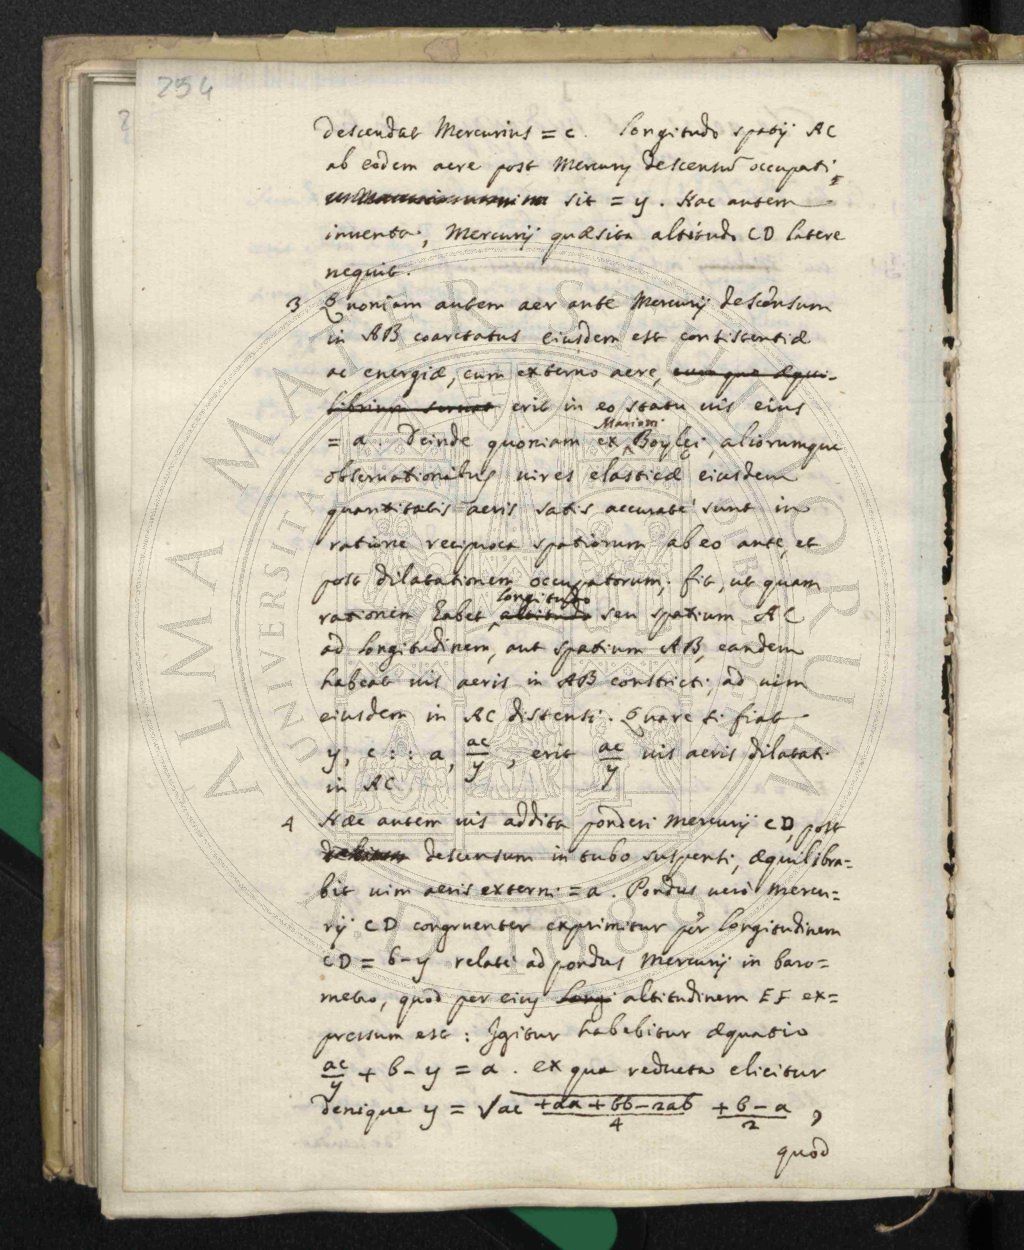 254
descendat Mercurius = c. longitudo spatij AC
ab eodem aere post Mercurij descensū occupati
sit = y. Hac autem
inventa, Mercurij quæsita altitudo CD latere
nequit.
3 Quoniam autem aer ante Mercurij descēsum
in AB coarctatus eiusdem est consistentiæ
ac energiæ, cum externo aere, cumque æqui-
librium servat erit in eo statu vis eius
Mariotti
= a. Deinde quoniam ex Boylei, aliorumque
observationibus vires elasticæ eiusdem
quantitatis aeris satis accuratè sunt in
ratione reciproca spatiorum ab eo ante, et
post dilatationem occupatorum; fit, ut quam
longitudo
rationem habet, altitudo seu spatium AC
ad longitudinem, aut spatium AB, eandem
habeat vis aeris in AB constricti, ad vim
eiusdem in AC distensi. Quare si fiat
y, c :: a, ac/y, erit ac/y vis aeris dilatati
in AC.
4 Hæc autem vis addita ponderi Mercurij CD, post
descensum in tubo suspensi, æquilibra=
bit vim aeris externi = a. Pondus verò Mercu=
rij CD congruenter exprimitur per longitudinem
CD = b-y relatè ad pondus Mercurij in baro=
metro, quod per eius longi altitudinem EF ex=
pressum est: Igitur habebitur æquatio
ac/y + b - y = a. ex qua reducta elicitur
denique y = √ac +aa+bb-2ab/4 +b-a/2,
quod